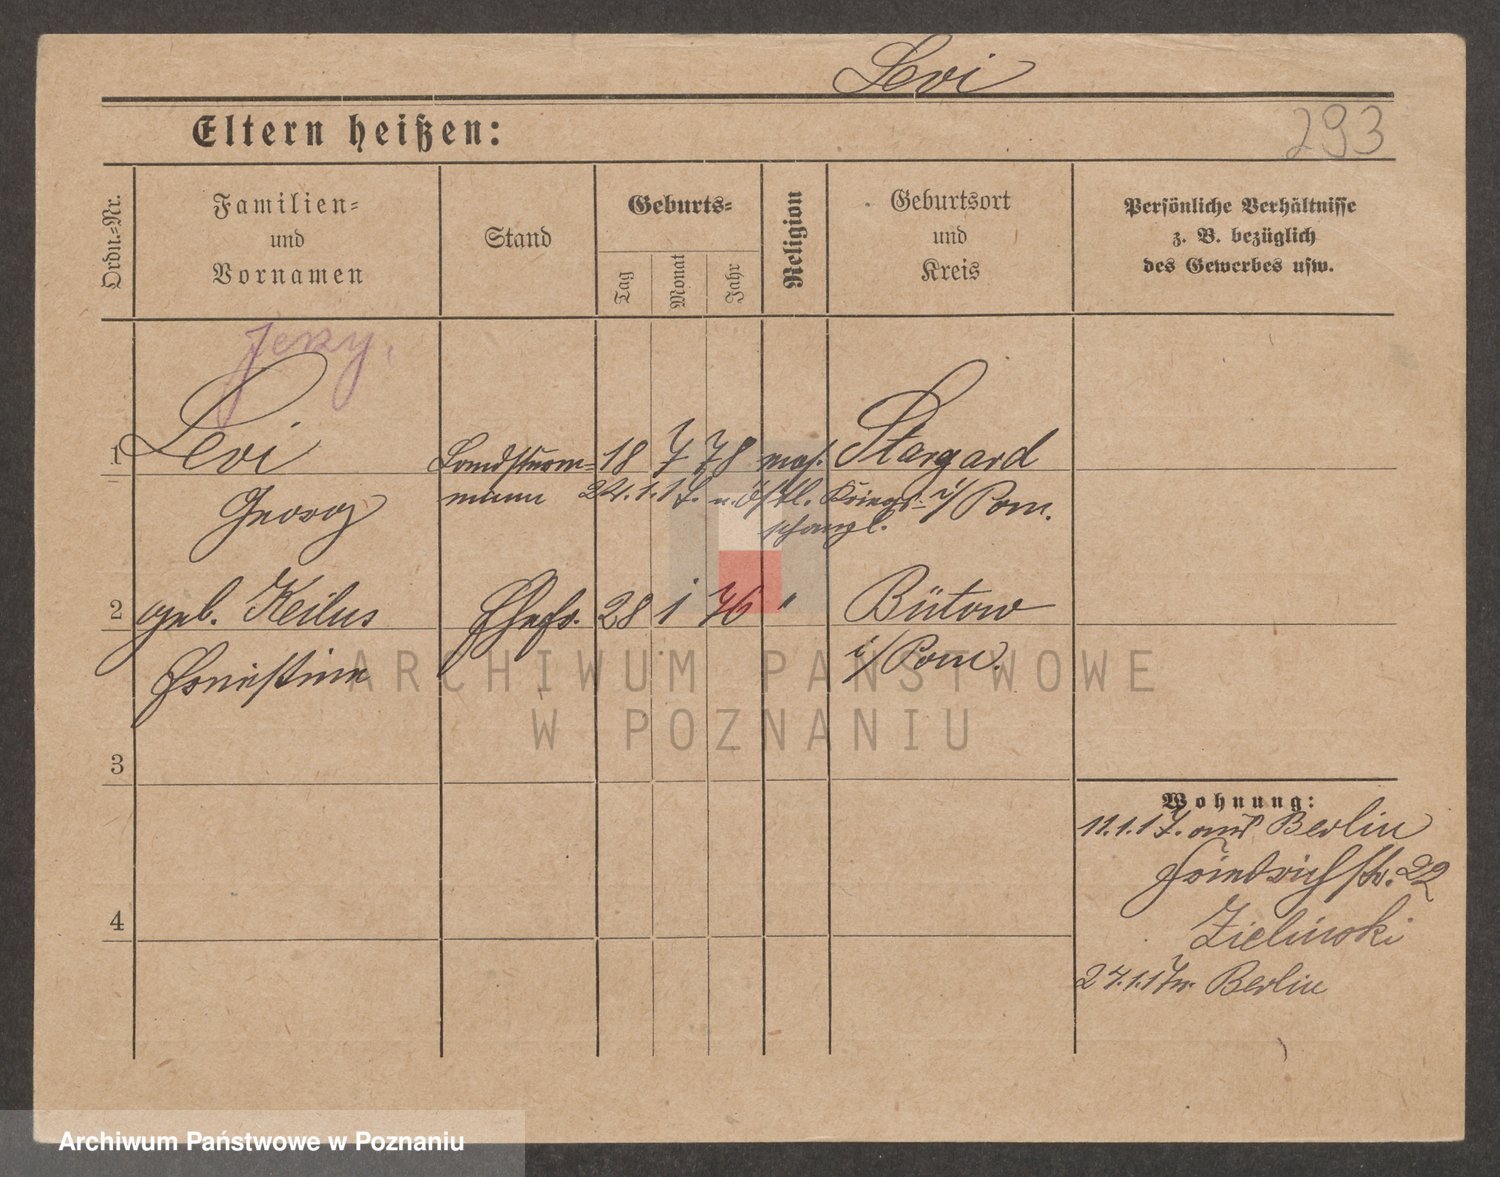 Levi
Eltern heißen:
293
Ordn.=Nr.
Familien=
und
Vornamen
Stand
Geburts=
Tag
Monat
Jahr
Religion
Geburtsort
und
Kreis
Persönliche Verhältnisse
z. B. bezüglich
des Gewerbes usw.
Jerzy.
1 Levi Landsturm= 18 7 78 mos. Stargard
Georg mann 24.1.17. n. östl. Kriegs- i/Pom.
schaupl.
2 geb. Keilus Ehefr. 28 1 76 " Bütow
Ernestine i/Pom.
ARCHIWUM PAŃSTWOWE
W POZNANIU
3
Wohnung:
11.1.17. aus Berlin
Friedrichstr. 22
Zielinski
4
24.1.17 n. Berlin
Archiwum Państwowe w Poznaniu